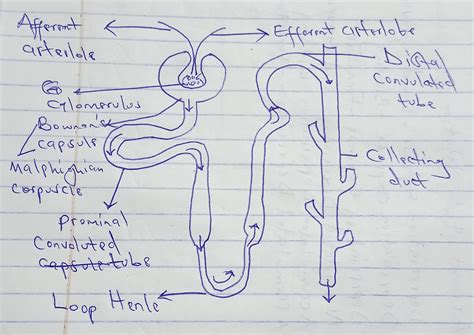 Afferent
arteriole
Efferent arteriobe
Distal
Convulated
tube
Glomerulus
Bowman's
capsule
Malphighian
corpuscle
Collecting
duct
Prominal
Convoluted
capsule tube
Loop Henle